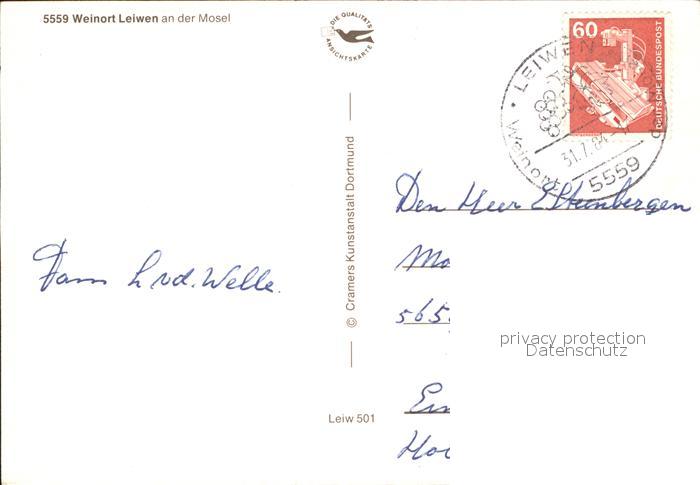 5559 Weinort Leiwen an der Mosel
DIE QUALITÄTS
ANSICHTSKARTE
60
DEUTSCHE BUNDESPOST
LEIWEN
Weinort
31.7.84
5559
© Cramers Kunstanstalt Dortmund
Leiw 501
Fam L vd. Welle.
Den Heer
Mo
565
privacy protection
Datenschutz